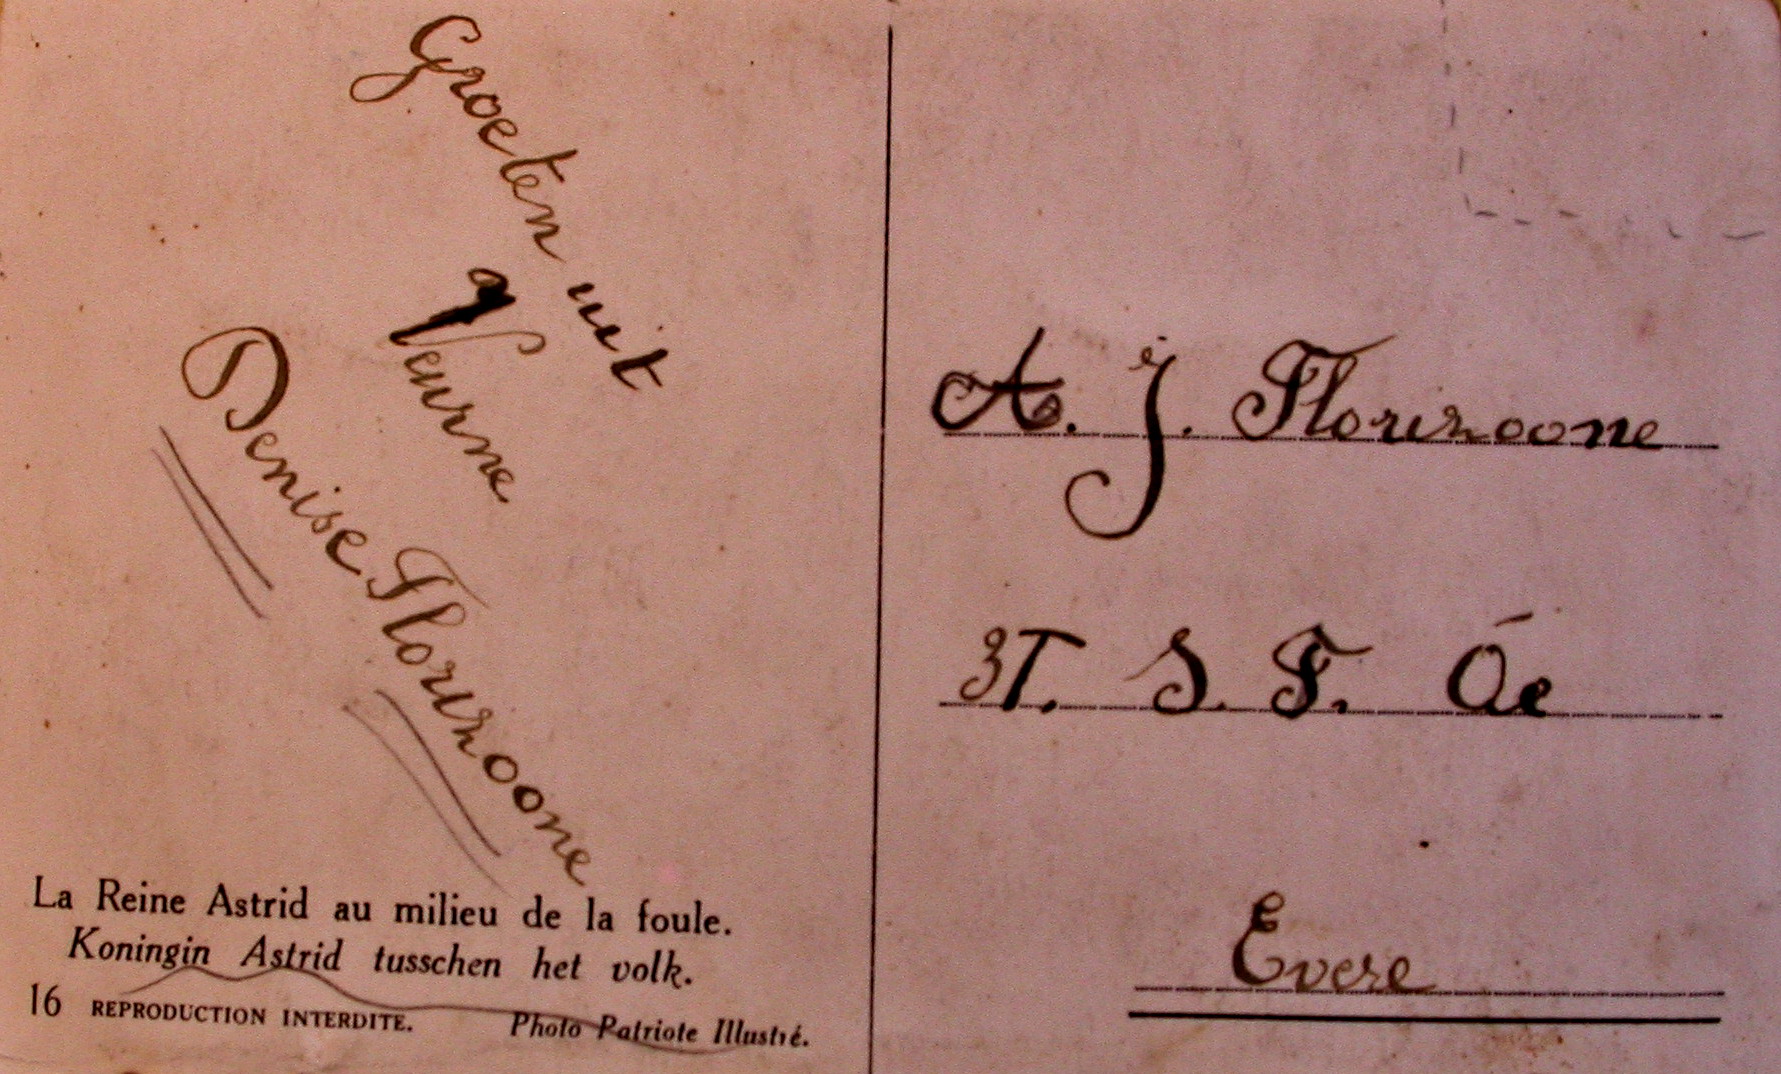 Groeten uit
Veurne
Denise Florizoone
La Reine Astrid au milieu de la foule.
Koningin Astrid tusschen het volk.
16 REPRODUCTION INTERDITE. Photo Patriote Illustré.
A. J. Florizoone
3T. S. F. Ae
Evere